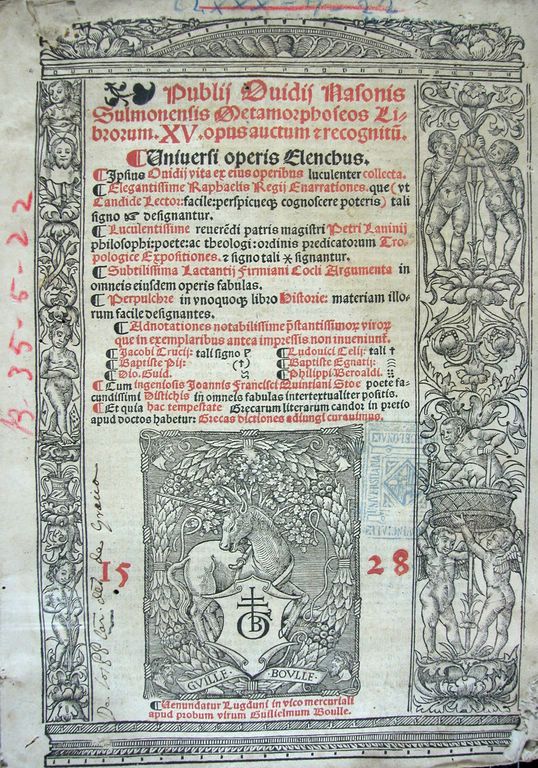 Publij Ouidij Nasonis
Sulmonensis Metamorphoseos Li-
brorum.XV.opus auctum ⁊ recognitũ.
¶Uniuersi operis Elenchus.
¶Ipsius Ouidij vita ex eius operibus luculenter collecta.
¶Elegantissime Raphaelis Regij Enarrationes.que (vt
Candide Lector:facile:perspicueq; cognoscere poteris) tali
signo ☞ designantur.
¶Luculentissime reuerẽdi patris magistri Petri Lauinij
philosophi:poete:ac theologi:ordinis predicatorum Tro-
pologice Expositiones.⁊ signo tali ⚹ signantur.
¶Subtilissima Lactantij Firmiani Cocli Argumenta in
omneis eiusdem operis fabulas.
¶Perpulchre in vnoquoq; libro Historie: materiam illo-
rum facile designantes.
¶Adnotationes notabilissime p̃stantissimoꝝ viroꝝ
que in exemplaribus antea impressis non inueniunt̃.
¶Jacobi Crucij: tali signo ꝑ ¶Ludouici Celij: tali †
¶Baptiste Pij: (†) ¶Baptiste Egnatij: ::
¶Dio. Guid. ¶Philippi Beroaldi.
¶Cum ingeniosis Joannis Francisci Quintiani Stoe poete fa-
cundissimi Distichis in omneis fabulas intertextualiter positis.
¶Et quia hac tempestate Grecarum literarum candor in pretio
apud doctos habetur: Grecas dictiones adiungi curauimus.
15 28
G B
GVILLE · BOVLLE ·
¶Uenundatur Lugduni in vico mercuriali
apud probum virum Guilielmum Boulle.
13-35-5-22